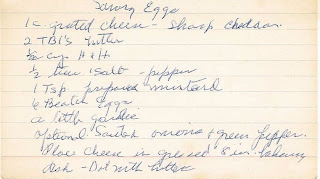 Eggs
1 c. grated cheese - Sharp cheddar
2 TBl's butter
1/2 cup H & H
1/2 tsp salt - pepper
1 Tsp prepared mustard
6 Beaten Eggs
a little garlic
optional. Sauteed onions & green pepper.
Place cheese in greased 8 in. baking
dish - Dot with butter